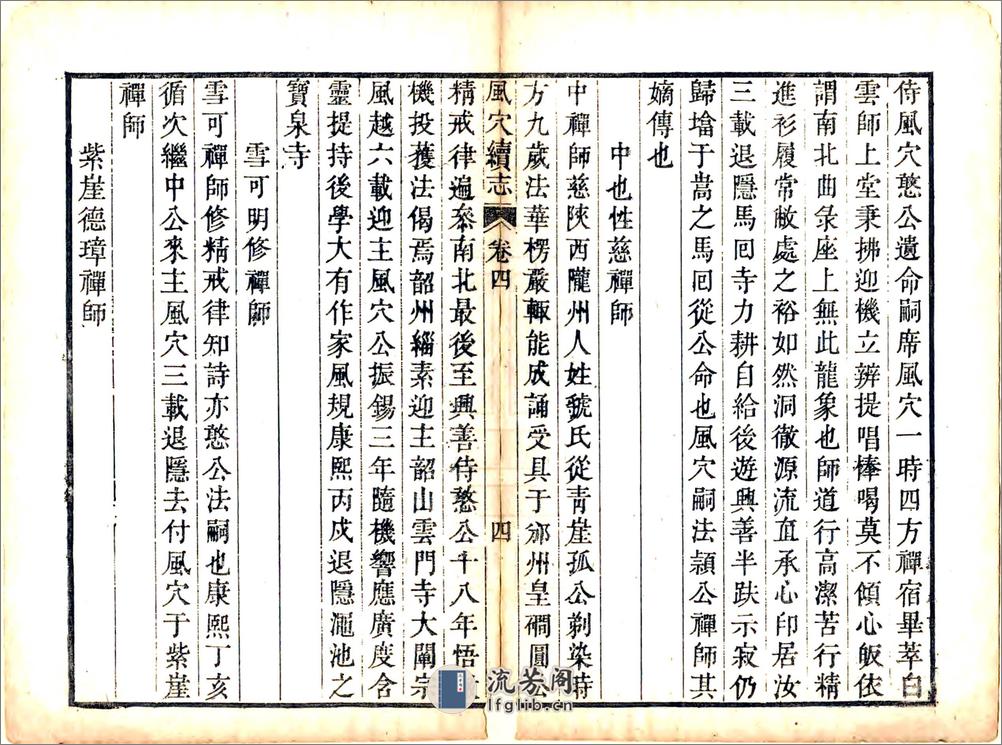 侍風穴憨公遺命嗣席風穴一時四方禪宿畢萃白
雲師上堂秉拂迎機立辨提唱棒喝莫不傾心皈依
謂南北曲彔座上無此龍象也師道行高潔苦行精
進衫履常敝處之裕如然洞徹源流直承心印居汝
三載退隱馬回寺力耕自給後遊興善半趺示寂仍
歸墖于嵩之馬回從公命也風穴嗣法頴公禪師其
嫡傳也
中也性慈禪師
中禪師慈陝西隴州人姓虢氏從青崖孤公剃染時
方九歲法華楞嚴輙能成誦受具于邠州皇礀圓
風穴續志 卷四 四
精戒律遍叅南北最後至興善侍憨公十八年悟
機投獲法偈焉韶州緇素迎主韶山雲門寺大闡宗
風越六載迎主風穴公振錫三年隨機響應廣度含
靈提持後學大有作家風規康熙丙戌退隱澠池之
寶泉寺
雪可明修禪師
雪可禪師修精戒律知詩亦憨公法嗣也康熙丁亥
循次繼中公來主風穴三載退隱去付風穴于紫崖
禪師
紫崖德璋禪師
流芳阁
lfglib.cn